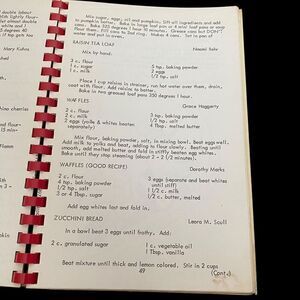 Mix sugar, eggs, oil and pumpkin. Sift all ingredients and add
to pumpkin batter. Bake in large loaf pan or 4 small
Bake 325 degrees 1 hour 10 minutes. Grease cans but DON'T
flour them. Fill cans to 2nd ring. Makes 4 cans. Set in pan of
water and put in oven.
RAISIN TEA LOAF
Naomi
Mix by hand.
3 c. flour
1 c. sugar
1 c. milk
5 tsp. baking powder
2 eggs
1/2 tsp. salt
Place 1 cup raisins in strainer, run hot water over them, drain,
coat with flour and add.
Bake in two greased loaf pans 350 degrees 1 hour.
WAFFLES
Grace Haggerty
2 c. flour
2 c. milk
2 eggs (yolks & whites beaten
separately)
2 tsp. baking powder
1/2 tsp. salt
4 Tbsp. melted butter
Mix flour, baking powder, salt, in mixing bowl. Beat egg yolks.
Add milk to yolks and beat, adding to flour slowly. Beating well until
smooth, add melted butter and fold in stiffly beaten egg whites.
Bake until they stop steaming (about 2 - 2 1/2 minutes).
WAFFLES (GOOD RECIPE)
Dorothy Marks
2 c. flour
4 tsp. baking powder
1/2 tsp. salt
3 or 4 Tbsp. sugar
3 eggs (separate and beat whites
until stiff)
1 1/2 c. milk
1/2 c. melted butter
Add egg whites last and fold in.
ZUCCHINI BREAD
Leora M. Scull
In a bowl beat 3 eggs until frothy. Add:
2 c. granulated sugar
1 c. vegetable oil
1 Tbsp. vanilla
Beat mixture until thick and lemon colored. Stir in 2 cups
49
(Cont.)
Mary Kuhns